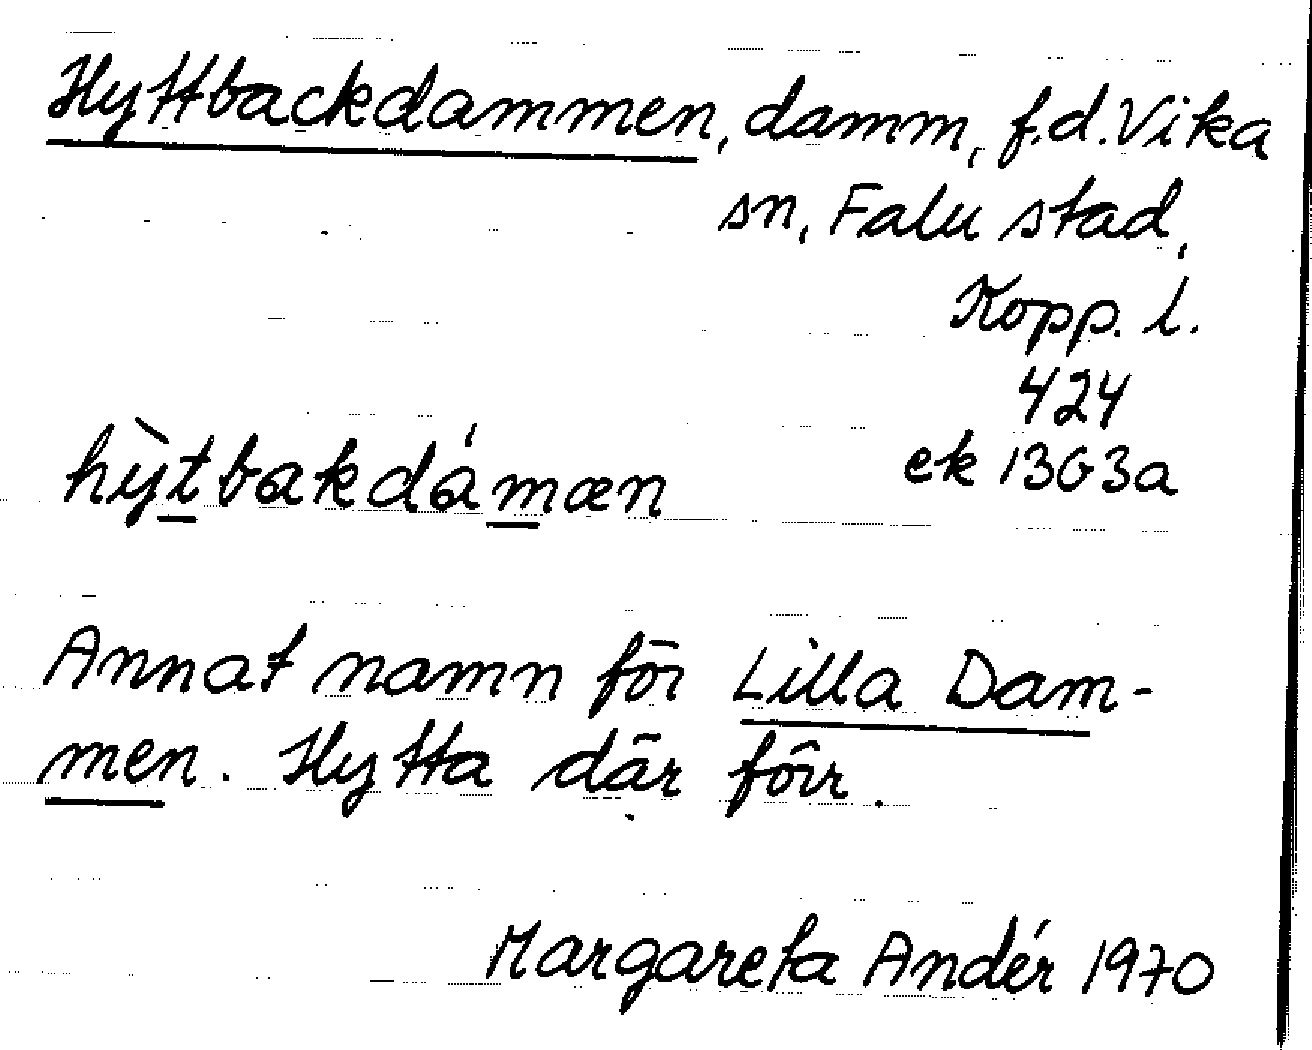 Hyttbackdammen, damm, f.d. Vika
sn, Falu stad,
Kopp. l.
424
ek 13G3a
hy̆̀tbakdámæn
Annat namn för Lilla Dam-
men. Hytta där förr.
Margareta Andér 1970